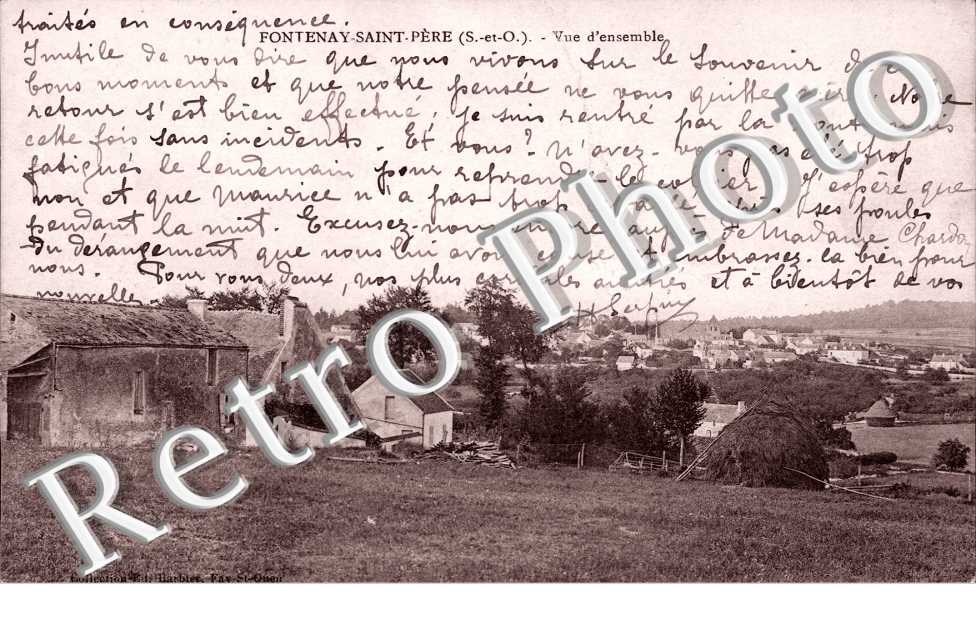 traités en conséquence.
FONTENAY-SAINT-PÈRE (S.-et-O.). - Vue d'ensemble
Inutile de vous dire que nous vivons sur le souvenir de
bons moments et que notre pensée ne vous quitte Notre
retour s'est bien effectué, je suis rentré par la
cette fois sans incidents. Et vous? n'avez-
fatigués le lendemain pour reprendre le collier. J'espère que
non et que Maurice n'a pas trop ses poules
pendant la nuit. Excusez-nous de Madame
du dérangement que nous lui avons Embrassez-la bien pour
nous. Pour vous deux, nos plus et à bientôt de vos
nouvelles
Collection Ed. Barbier, Fay-St-Ouen
Retro Photo